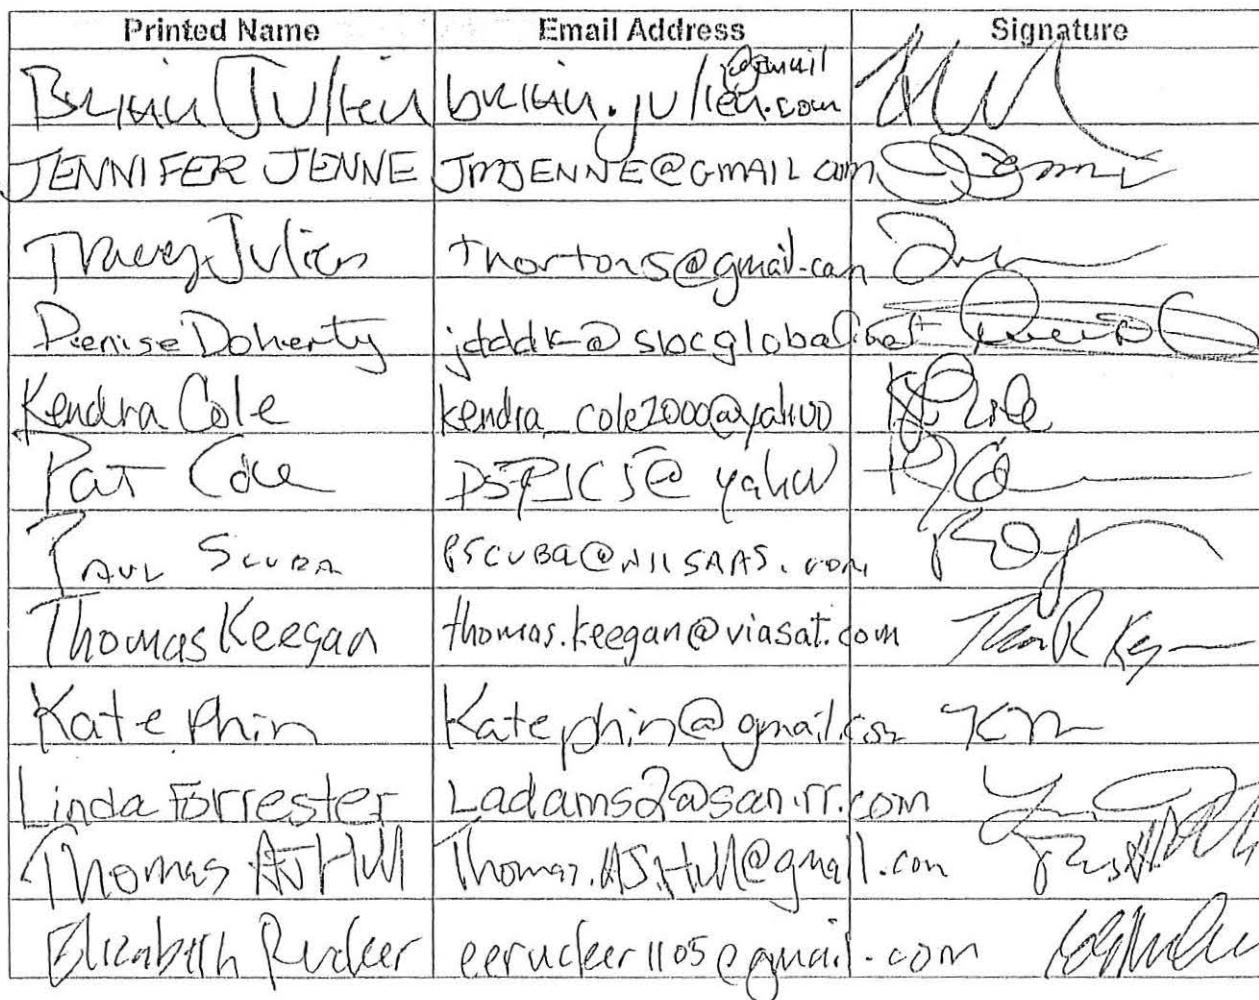 Printed Name Email Address Signature
Brian Julien brian.julien@gmail.com
JENNIFER JENNE JMJENNE@GMAIL.COM
Tracey Julien thortons@gmail.com
Denise Doherty jdddk@sbcglobal.net
Kendra Cole kendra_cole2000@yahoo
Pat Cole @yahoo
PAUL SCUBA PSCUBA@NIISAAS.COM
Thomas Keegan thomas.keegan@viasat.com
Kate Phin Katephin@gmail.com
Linda Forrester Ladams2@san.rr.com
Thomas AJ Hull Thomas.AJ.Hull@gmail.com
Elizabeth Rucker eerucker1105@gmail.com